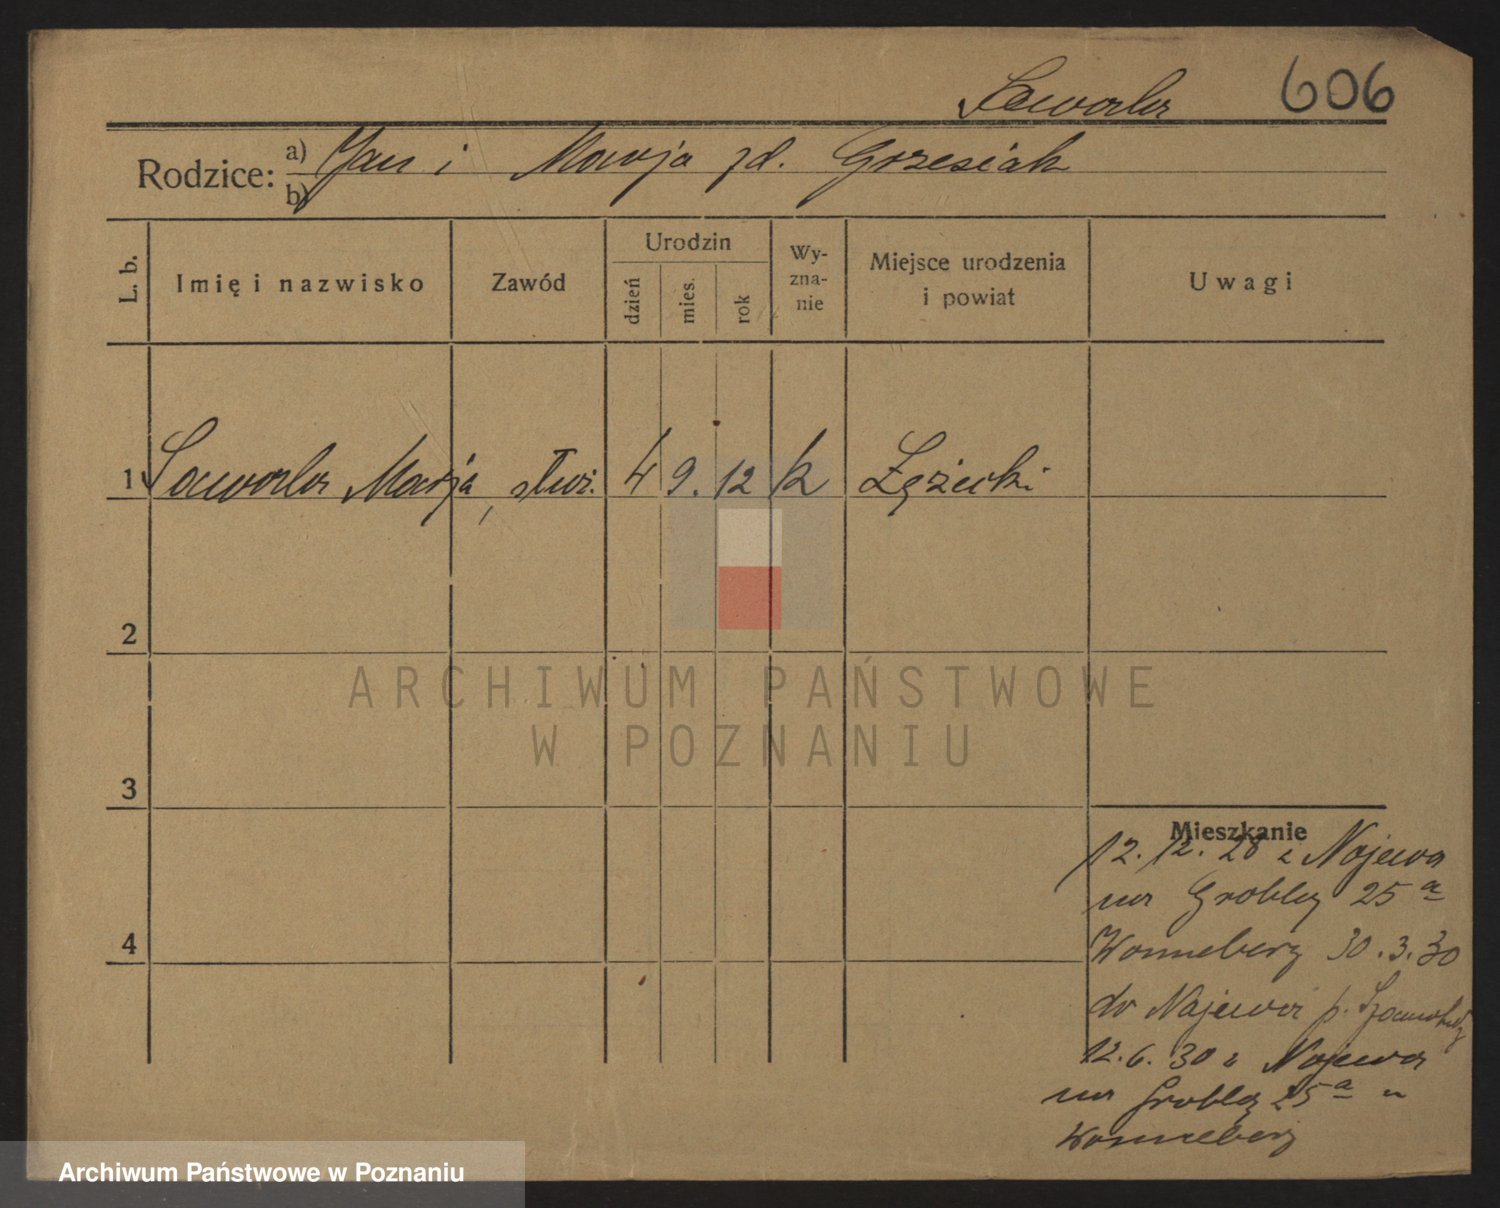 Sawala 606
Rodzice: a) Jan i Marja zd. Grzesiak
b)
L. b. Imię i nazwisko Zawód Urodzin dzień mies. rok Wy-zna-nie Miejsce urodzenia i powiat Uwagi
1 Sawala Marja, służ. 4 9. 12 k
2
3
4
Mieszkanie
12. 12. 28 z Najewa
na Grobla 25 a
Wonneberg 30.3.30
do Najewa p.
12.6.30 z Najewa
na Grobla 25 a u
Wonneberg
ARCHIWUM PAŃSTWOWE
W POZNANIU
Archiwum Państwowe w Poznaniu